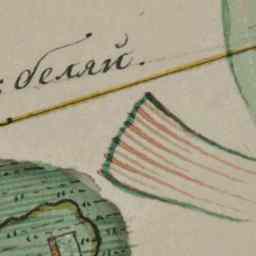 беляй.